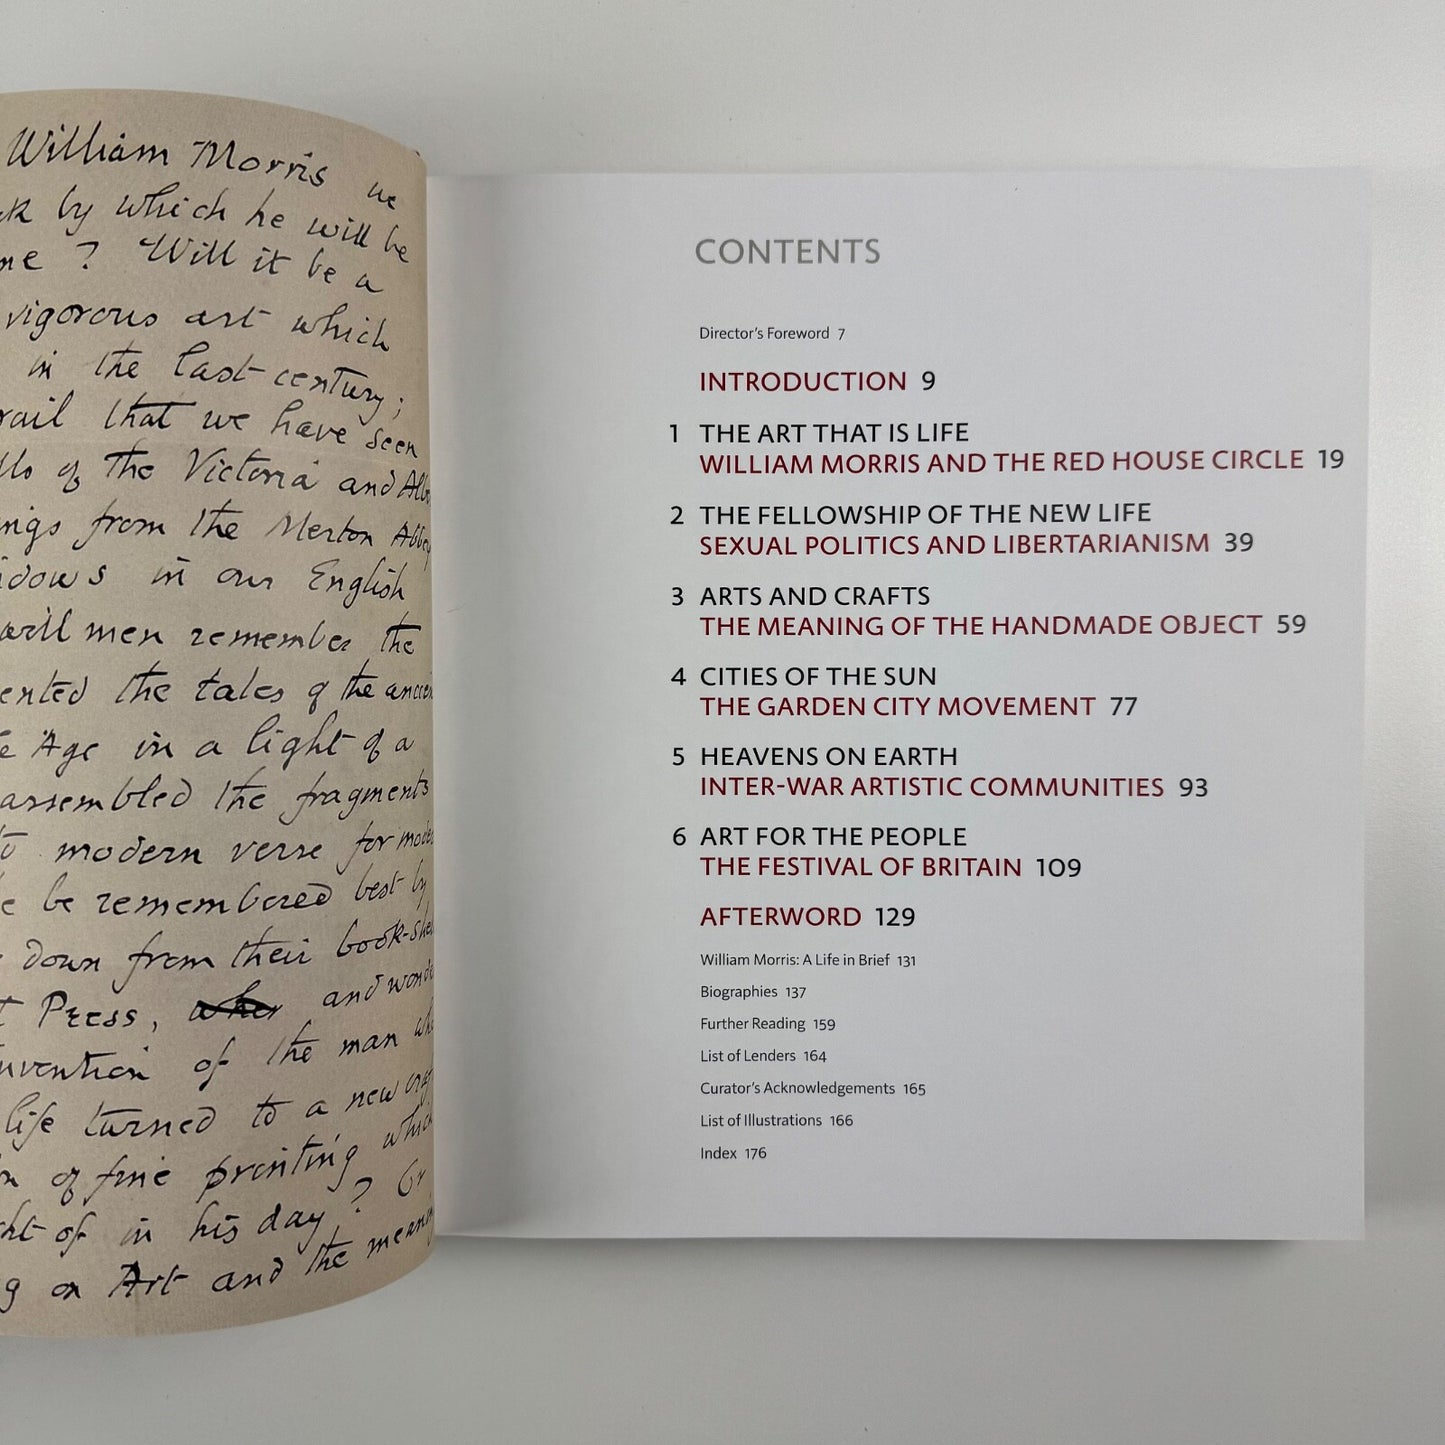 William Morris we
by which he will be
? Will it be a
vigorous art which
in the last century;
that we have seen
of the Victoria and
from the Merton
in our English
men remember the
the tales of the
Age in a light of a
assembled the fragments
modern verse for
be remembered best by
down from their
Press, and
of the man
life turned to a new
of fine printing which
of in his day? Or
on Art and the
CONTENTS
Director's Foreword 7
INTRODUCTION 9
1 THE ART THAT IS LIFE
WILLIAM MORRIS AND THE RED HOUSE CIRCLE 19
2 THE FELLOWSHIP OF THE NEW LIFE
SEXUAL POLITICS AND LIBERTARIANISM 39
3 ARTS AND CRAFTS
THE MEANING OF THE HANDMADE OBJECT 59
4 CITIES OF THE SUN
THE GARDEN CITY MOVEMENT 77
5 HEAVENS ON EARTH
INTER-WAR ARTISTIC COMMUNITIES 93
6 ART FOR THE PEOPLE
THE FESTIVAL OF BRITAIN 109
AFTERWORD 129
William Morris: A Life in Brief 131
Biographies 137
Further Reading 159
List of Lenders 164
Curator's Acknowledgements 165
List of Illustrations 166
Index 176